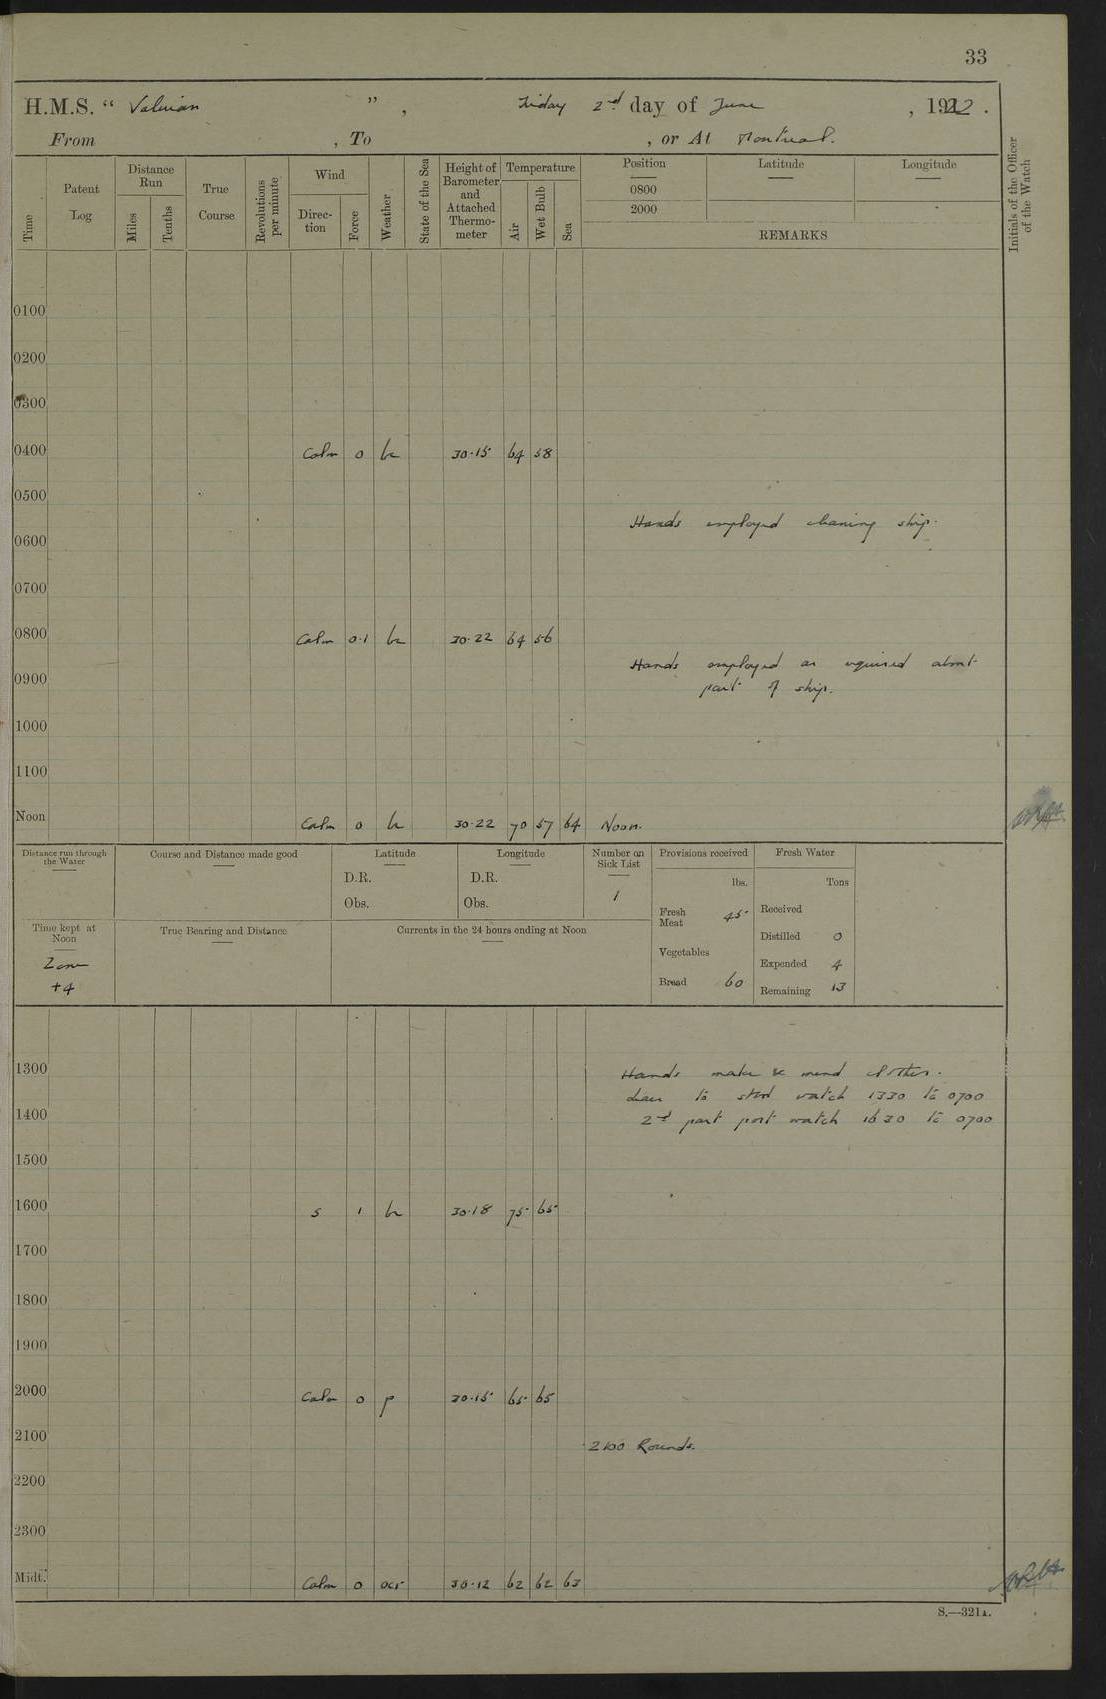 33
H.M.S. “ Valerian ” , Friday 2nd day of June , 1922 .
From , To , or At Montreal.
Time
Patent Log
Distance Run
Miles
Tenths
True Course
Revolutions per minute
Wind
Direc-tion
Force
Weather
State of the Sea
Height of Barometer and Attached Thermo-meter
Temperature
Air
Wet Bulb
Sea
Position
Latitude
Longitude
0800
2000
REMARKS
Initials of the Officer of the Watch
0100
0200
0300
0400 Calm 0 bc 30·15 64 58
0500
Hands employed cleaning ship.
0600
0700
0800 Calm 0·1 bc 30·22 64 56
Hands employed as required about
0900
part of ship.
1000
1100
Noon Calm 0 bc 30·22 70 57 64 Noon.
Distance run through the Water
Course and Distance made good
Latitude
D.R.
Obs.
Longitude
D.R.
Obs.
Number on Sick List
1
Provisions received
lbs.
Fresh Meat 45
Vegetables
Bread 60
Fresh Water
Tons
Received
Distilled 0
Expended 4
Remaining 13
Time kept at Noon
Zone
+4
True Bearing and Distance
Currents in the 24 hours ending at Noon
1300
Hands make & mend clothes.
Leave to stbd watch 1330 to 0700
1400
2nd part port watch 1630 to 0700
1500
1600 S 1 bc 30·18 75 65
1700
1800
1900
2000 Calm 0 p 30·15 65 65
2100 2100 Rounds.
2200
2300
Midt. Calm 0 ocr 30·12 62 62 63
S.—321A.